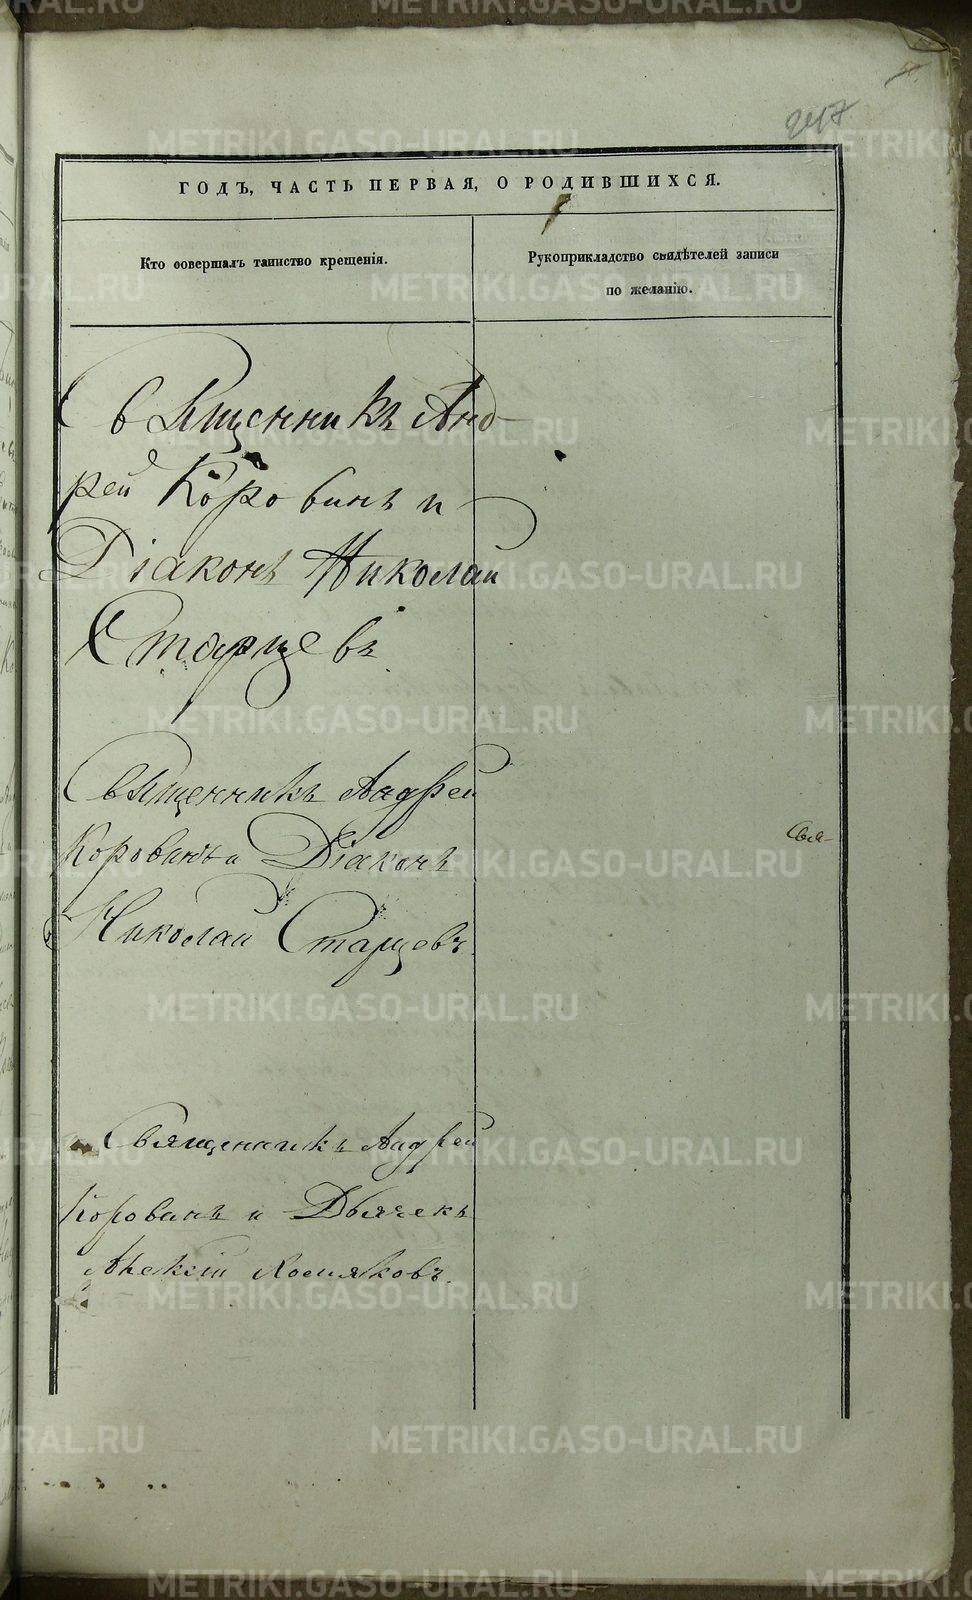 247
ГОДЪ, ЧАСТЬ ПЕРВАЯ, О РОДИВШИХСЯ.
Кто совершалъ таинство крещенія.
Рукоприкладство свидѣтелей записи
по желанію.
Священникъ Анд-
рей Коровинъ и
Діаконъ Николай
Старцевъ
Священникъ Андрей
Коровинъ и Діаконъ
Николай Старцевъ
Свя-
Священникъ Андрей
Коровинъ и Дьячекъ
Алексій Хомяковъ.
METRIKI.GASO-URAL.RU